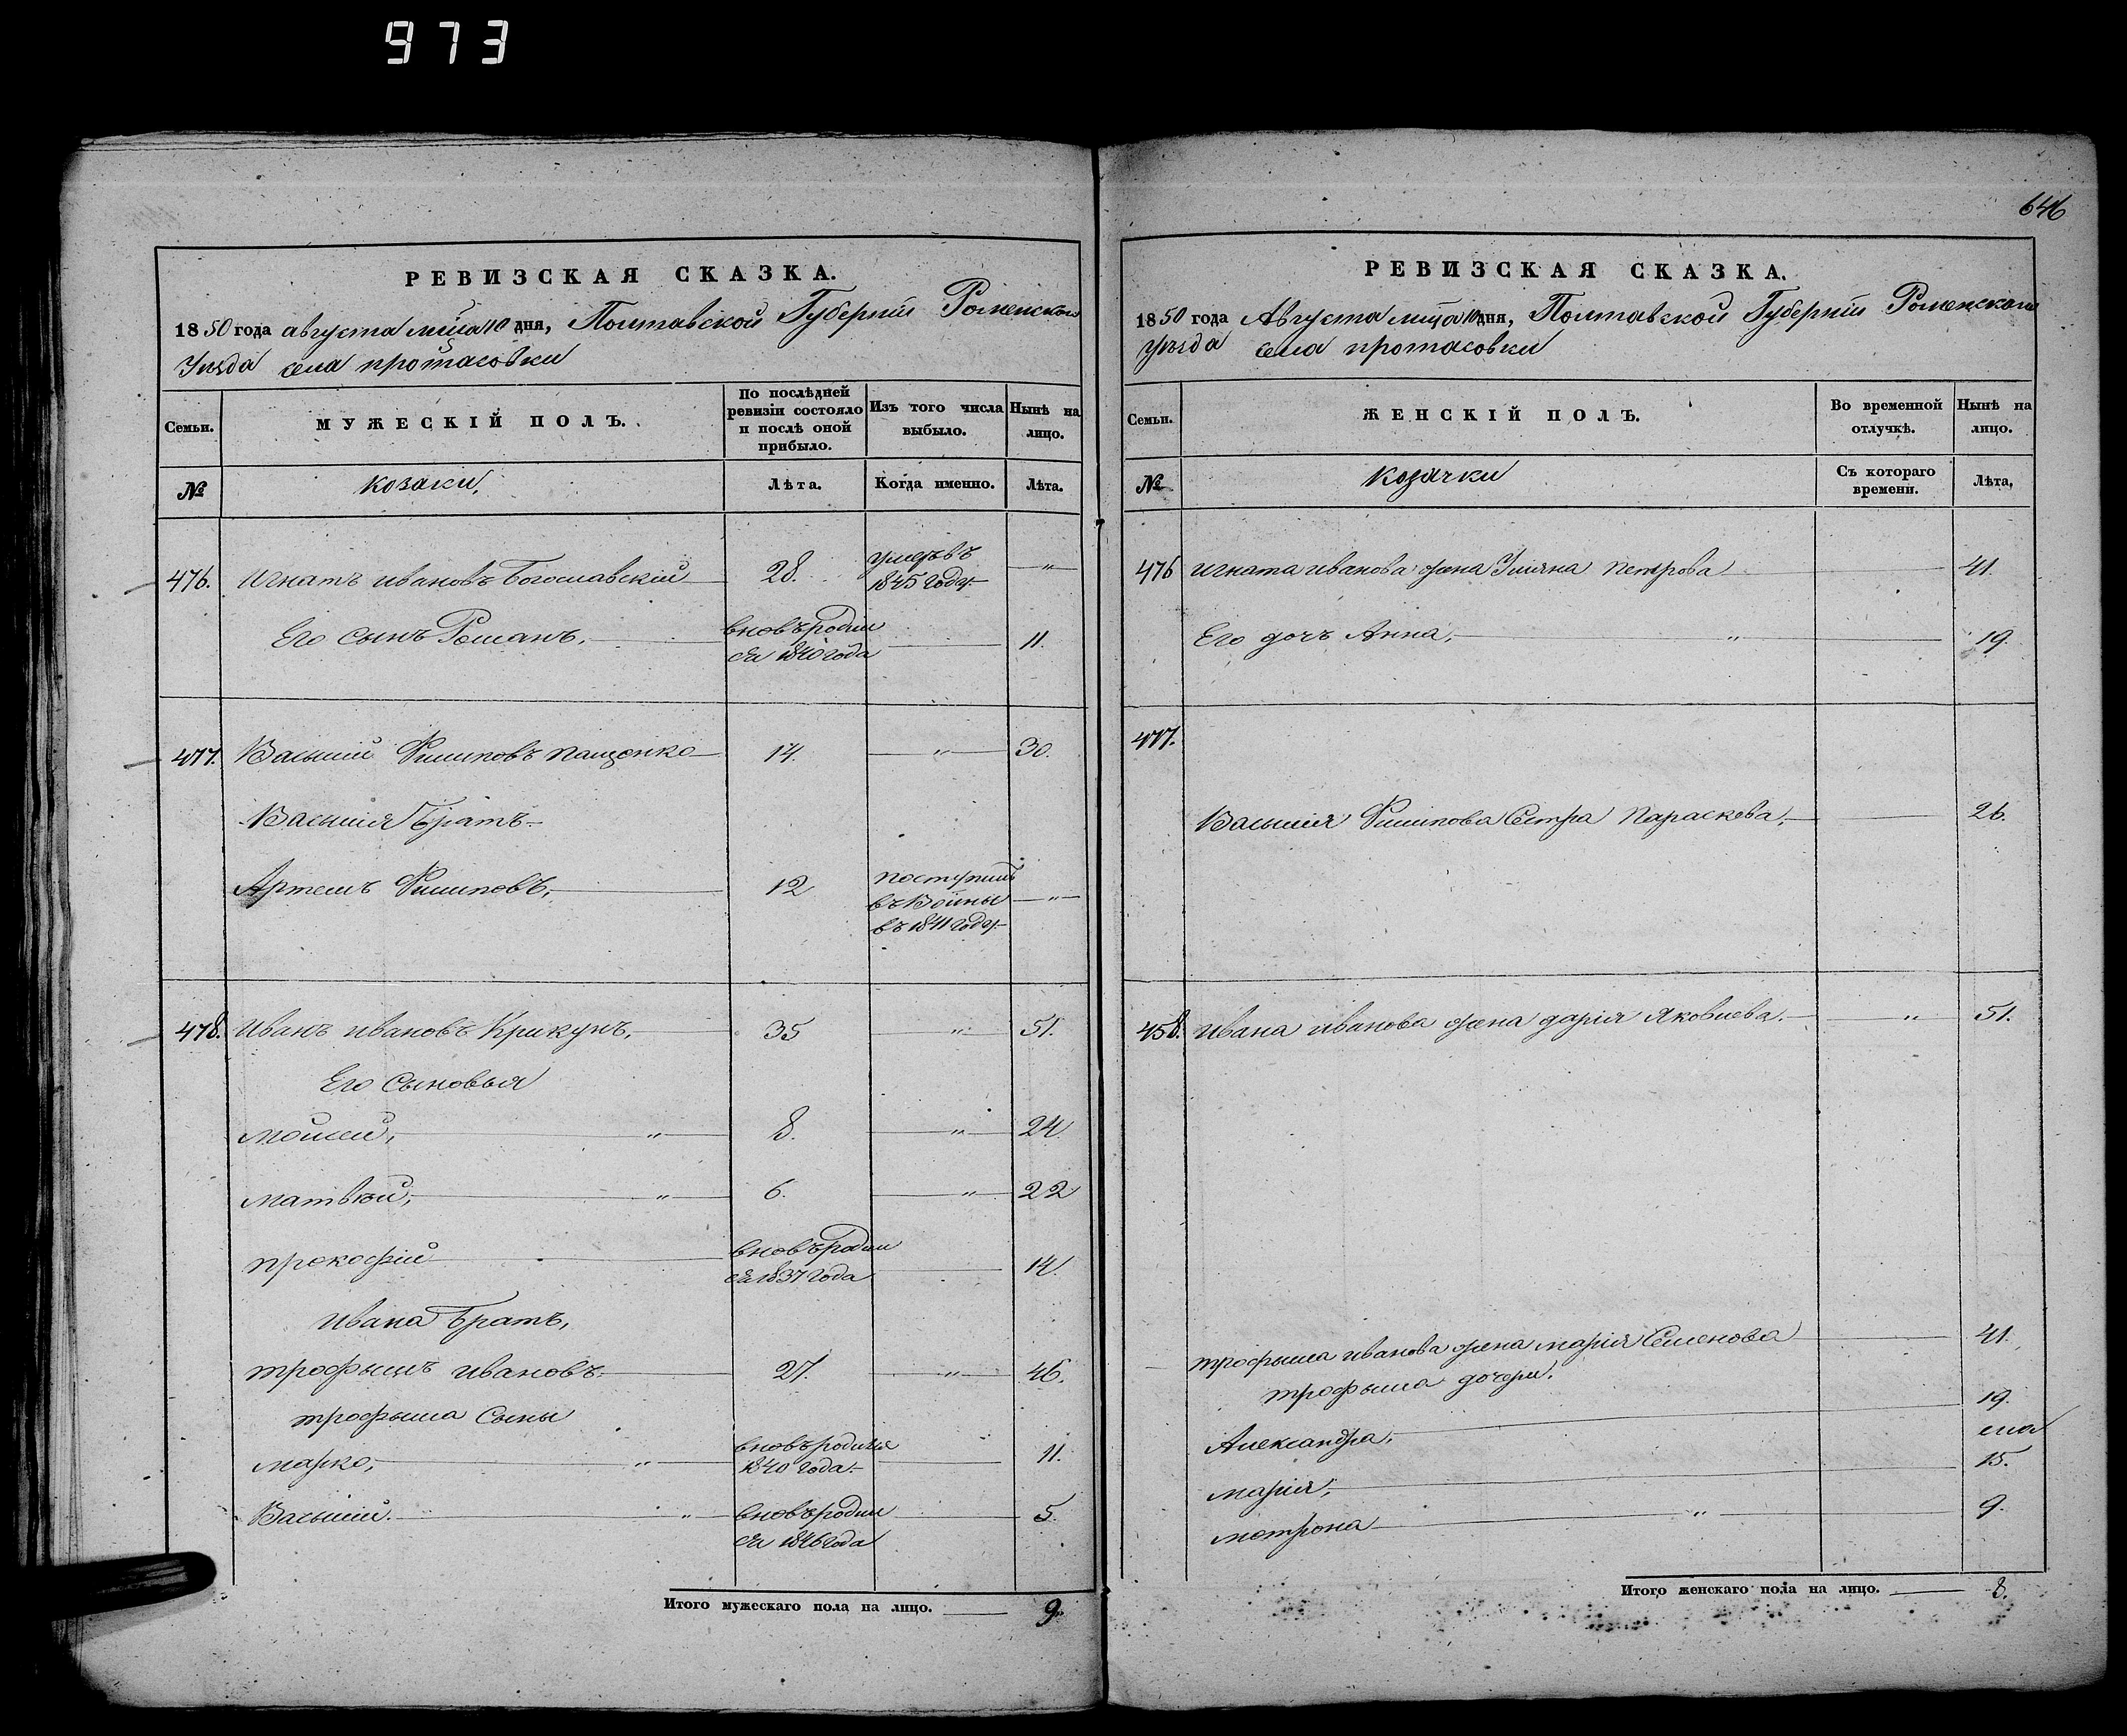 973
646
РЕВИЗСКАЯ СКАЗКА.
1850 года августа мца 10 дня, Полтавской Губерніи Роменского
Уезда села протасовки
Семьи.
МУЖЕСКІЙ ПОЛЪ.
По послѣдней ревизіи состояло и послѣ оной прибыло.
Изъ того числа выбыло.
Нынѣ на лицо.
№
козаки,
Лѣта.
Когда именно.
Лѣта.
476. Игнатъ ивановъ Богославскій 28. умеръ въ 1845 году „
Его сынъ Романъ, вновь родился 1840 года 11.
477. Василий Филиповъ пащенко 14. „ 30.
Василия Братъ
Артемъ Филиповъ, 12 поступилъ въ 1841 году „
478. Иванъ ивановъ Крикунъ, 35 „ 51.
Его Сыновья
мойсей, „ 8. „ 24
матвѣй, „ 6. „ 22
прокофій вновь родился 1837 года 14.
ивана Братъ,
трофымъ ивановъ 27. „ 46.
трофыма Сыны
марко, „ вновь родился 1840 года 11.
Василий. „ вновь родился 1846 года 5.
Итого мужескаго пола на лицо. 9
РЕВИЗСКАЯ СКАЗКА.
1850 года Августа мца 10 дня, Полтавской Губерніи Роменского
уѣзда села протасовки
Семьи.
ЖЕНСКІЙ ПОЛЪ.
Во временной отлучкѣ.
Нынѣ на лицо.
№
козачки
Съ котораго времени.
Лѣта,
476 игната иванова жена Улияна петрова 41.
Его дочь Анна, „ 19.
477.
Василия Филипова Сестра Параскева, 26.
458. ивана иванова жена дарія Яковлева. „ 51.
трофыма иванова жена марія Семенова 41.
трофыма дочери,
Александра, 19.
марія, 15.
мотрона „ 9.
Итого женскаго пола на лицо. 8.